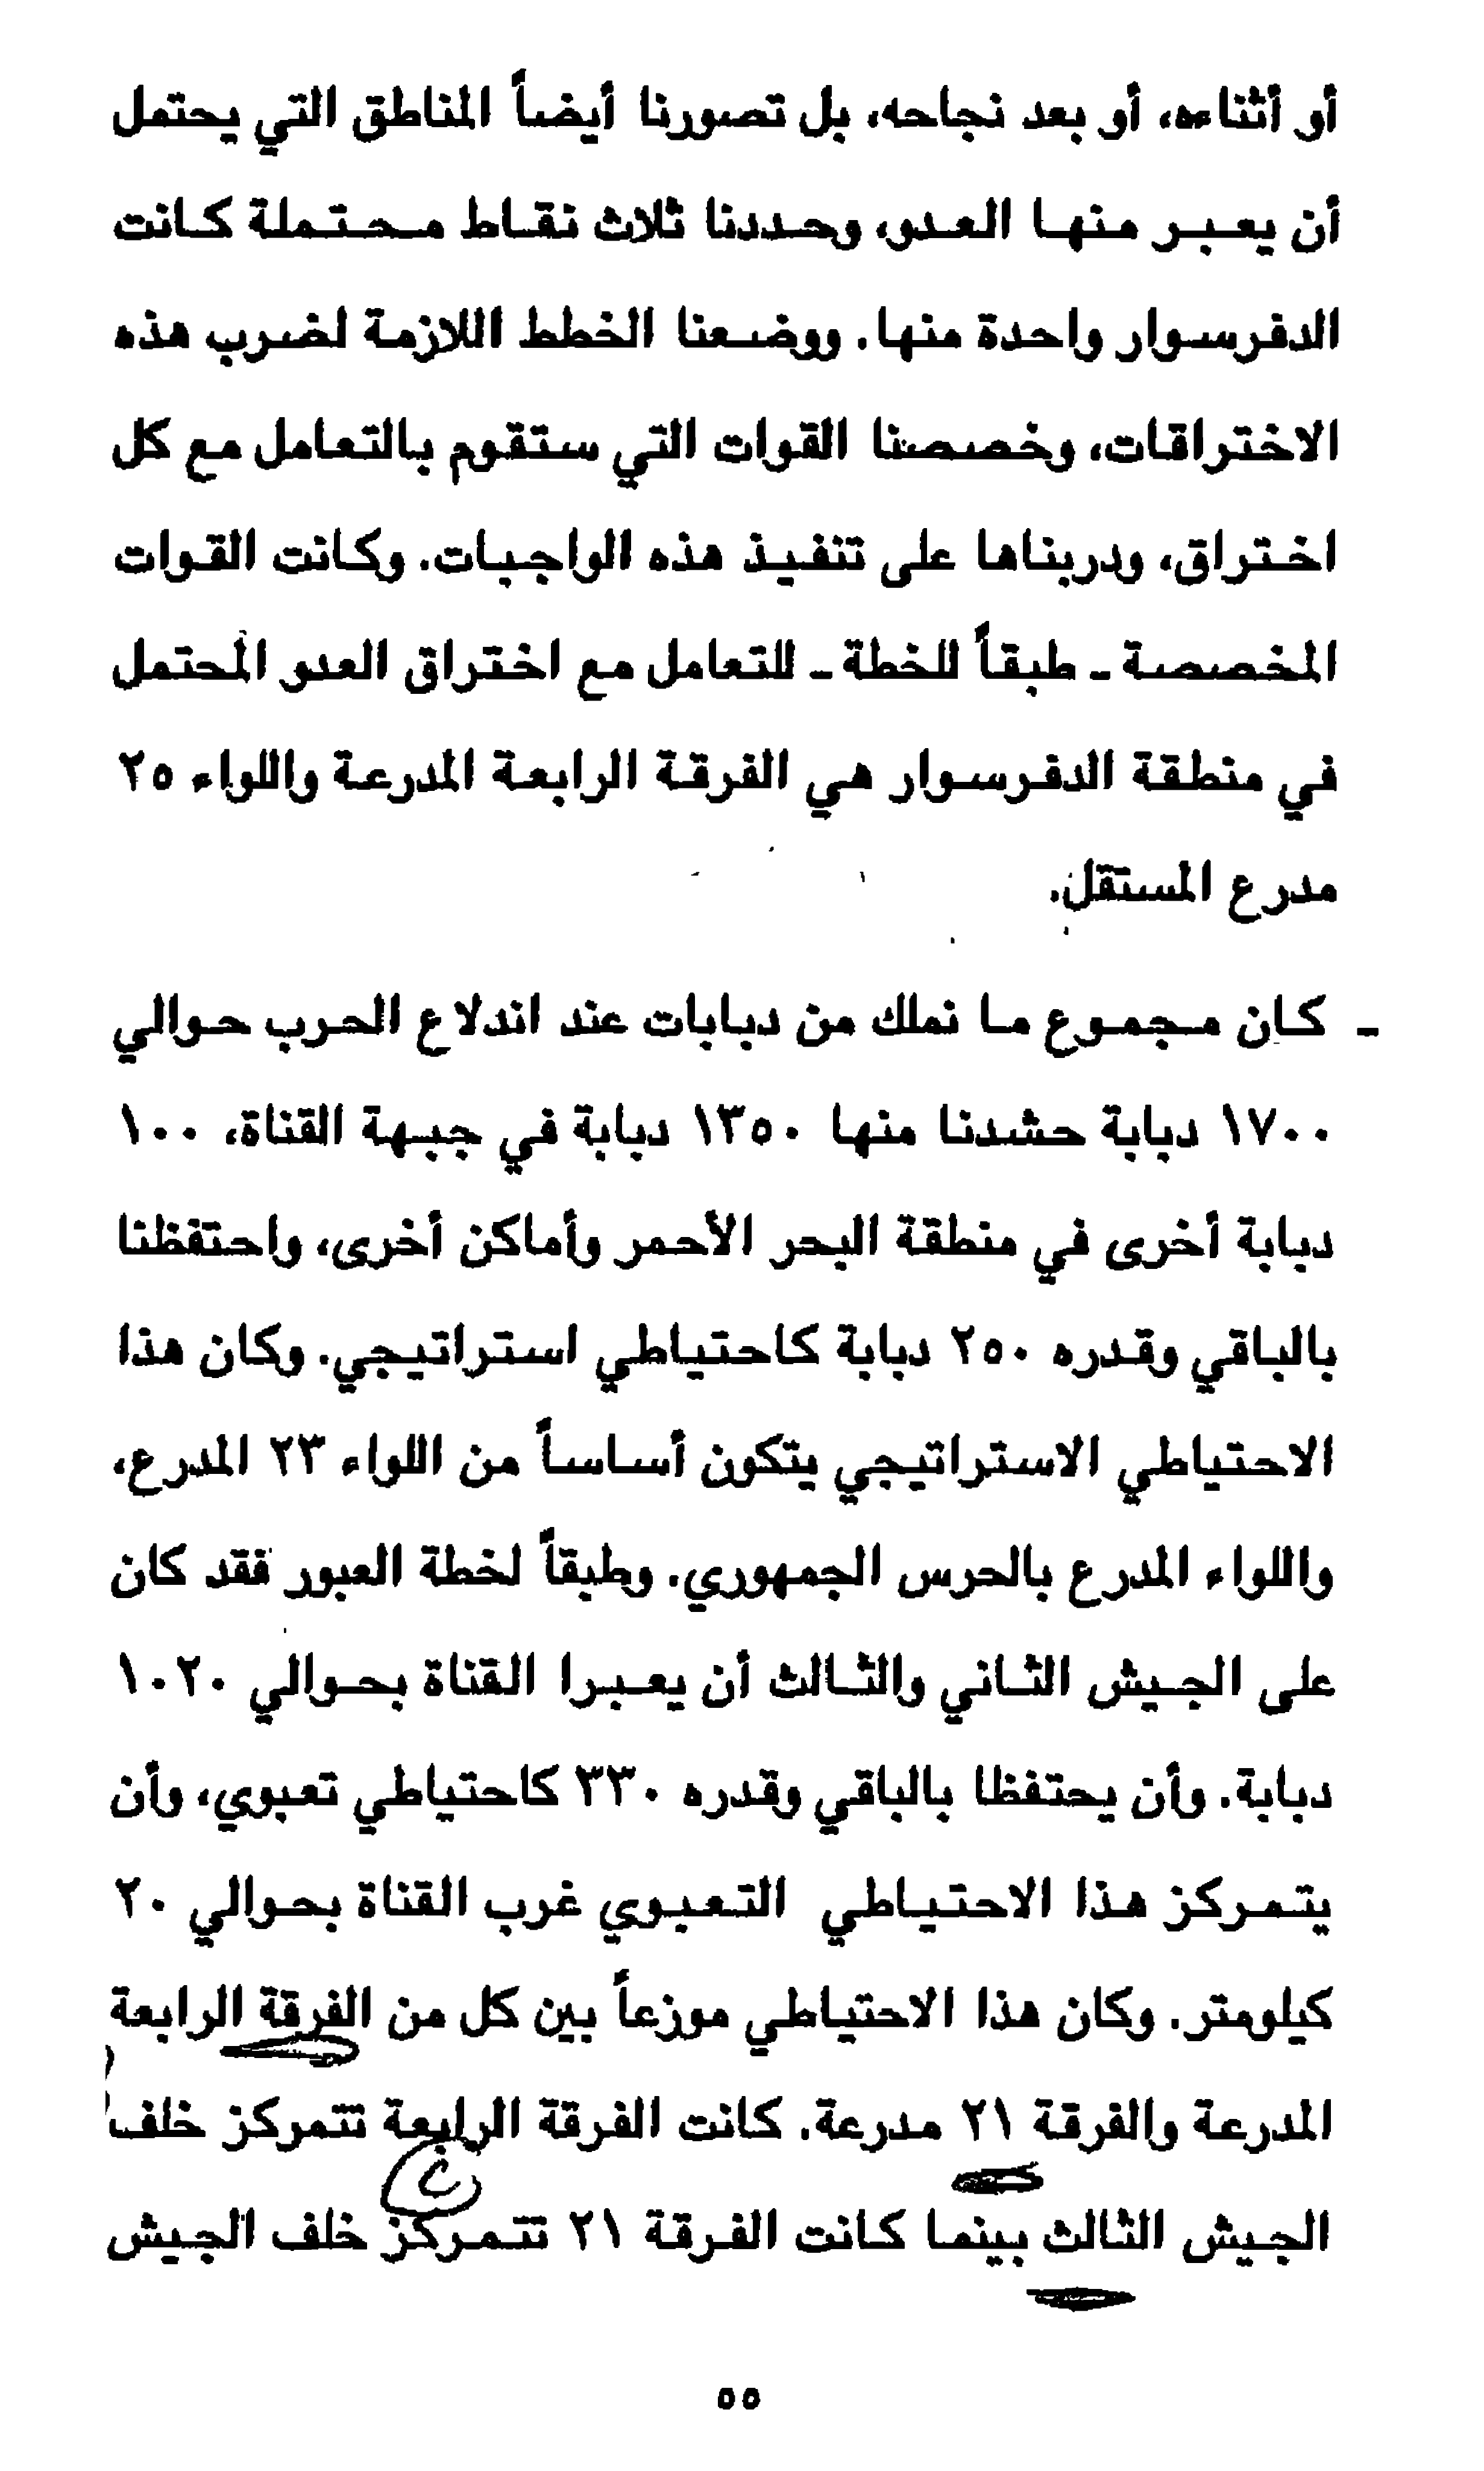 أو أثناءه، أو بعد نجاحه، بل تصورنا أيضاً المناطق التي يحتمل
أن يعبر منها العدو، وحددنا ثلاث نقاط محتملة كانت
الدفرسوار واحدة منها. ووضعنا الخطط اللازمة لضرب هذه
الاختراقات، وخصصنا القوات التي ستقوم بالتعامل مع كل
اختراق، ودربناها على تنفيذ هذه الواجبات. وكانت القوات
المخصصة - طبقاً للخطة - للتعامل مع اختراق العدو المحتمل
في منطقة الدفرسوار هي الفرقة الرابعة المدرعة واللواء ٢٥
مدرع المستقل.
- كان مجموع ما نملك من دبابات عند اندلاع الحرب حوالي
١٧٠٠ دبابة حشدنا منها ١٣٥٠ دبابة في جبهة القناة، ١٠٠
دبابة أخرى في منطقة البحر الأحمر وأماكن أخرى، واحتفظنا
بالباقي وقدره ٢٥٠ دبابة كاحتياطي استراتيجي. وكان هذا
الاحتياطي الاستراتيجي يتكون أساساً من اللواء ٢٣ المدرع،
واللواء المدرع بالحرس الجمهوري. وطبقاً لخطة العبور فقد كان
على الجيش الثاني والثالث أن يعبرا القناة بحوالي ١٠٢٠
دبابة. وأن يحتفظا بالباقي وقدره ٣٣٠ كاحتياطي تعبوي، وأن
يتمركز هذا الاحتياطي التعبوي غرب القناة بحوالي ٢٠
كيلومتر. وكان هذا الاحتياطي موزعاً بين كل من الفرقة الرابعة
المدرعة والفرقة ٢١ مدرعة. كانت الفرقة الرابعة تتمركز خلف
الجيش الثالث بينما كانت الفرقة ٢١ تتمركز خلف الجيش
٥٥